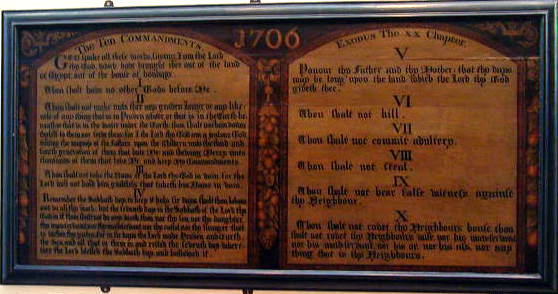 The Ten Commandments.
God spake all these words, saying I am the Lord
thy God, which have brought thee out of the land
of Egypt, out of the house of bondage.
I
Thou shalt have no other Gods before Me.
II
Thou shalt not make unto thee any graven Image or any like-
ness of any thing that is in Heaven above, or that is in the Earth be-
neath or that is in the water under the Earth. thou shalt not bow down
thyself to them nor serve them: for I the Lord thy God am a jealous God,
visiting the iniquity of the Fathers upon the Children unto the third and
fourth generation of them that hate Me and shewing Mercy unto
thousands of them that love Me and keep My Commandments.
III
Thou shalt not take the Name of the Lord thy God in vain. for the
Lord will not hold him guiltless that taketh his Name in vain.
IV
Remember the Sabbath day to keep it holy. Six days shalt thou labour
and do all thy work. but the seventh day is the Sabbath of the Lord thy
God in it thou shalt not do any work thou nor thy son nor thy daughter
thy manservant nor thy maidservant nor thy cattle nor the stranger that
is within thy gates for in six days the Lord made Heaven and Earth,
the Sea, and all that in them is, and rested the seventh day where-
fore the Lord blessed the Sabbath day and hallowed it.
1706
Exodus The XX Chapter.
V
Honour thy Father and thy Mother, that thy days
may be long upon the land which the Lord thy God
giveth thee.
VI
Thou shalt not kill.
VII
Thou shalt not commit adultery.
VIII
Thou shalt not steal.
IX
Thou shalt not bear false witness against
thy Neighbour.
X
Thou shalt not covet thy Neighbours house thou
shalt not covet thy Neighbours wife nor his manservant
nor his maidservant nor his ox nor his ass, nor any
thing that is thy Neighbours.